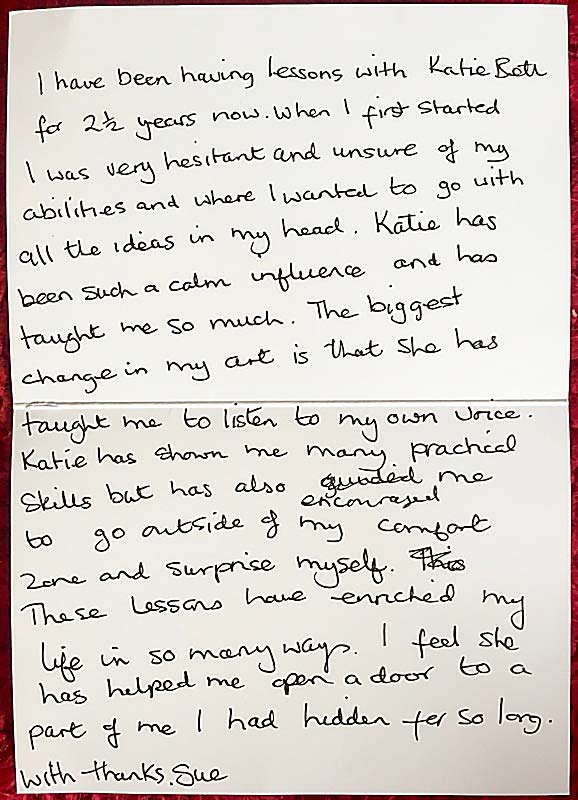 I have been having lessons with Katie Beth
for 2½ years now. When I first started
I was very hesitant and unsure of my
abilities and where I wanted to go with
all the ideas in my head. Katie has
been such a calm influence and has
taught me so much. The biggest
change in my art is that she has
taught me to listen to my own voice.
Katie has shown me many practical
skills but has also guided me
encouraged
to go outside of my comfort
zone and surprise myself. This
These lessons have enriched my
life in so many ways. I feel she
has helped me open a door to a
part of me I had hidden for so long.
With thanks. Sue